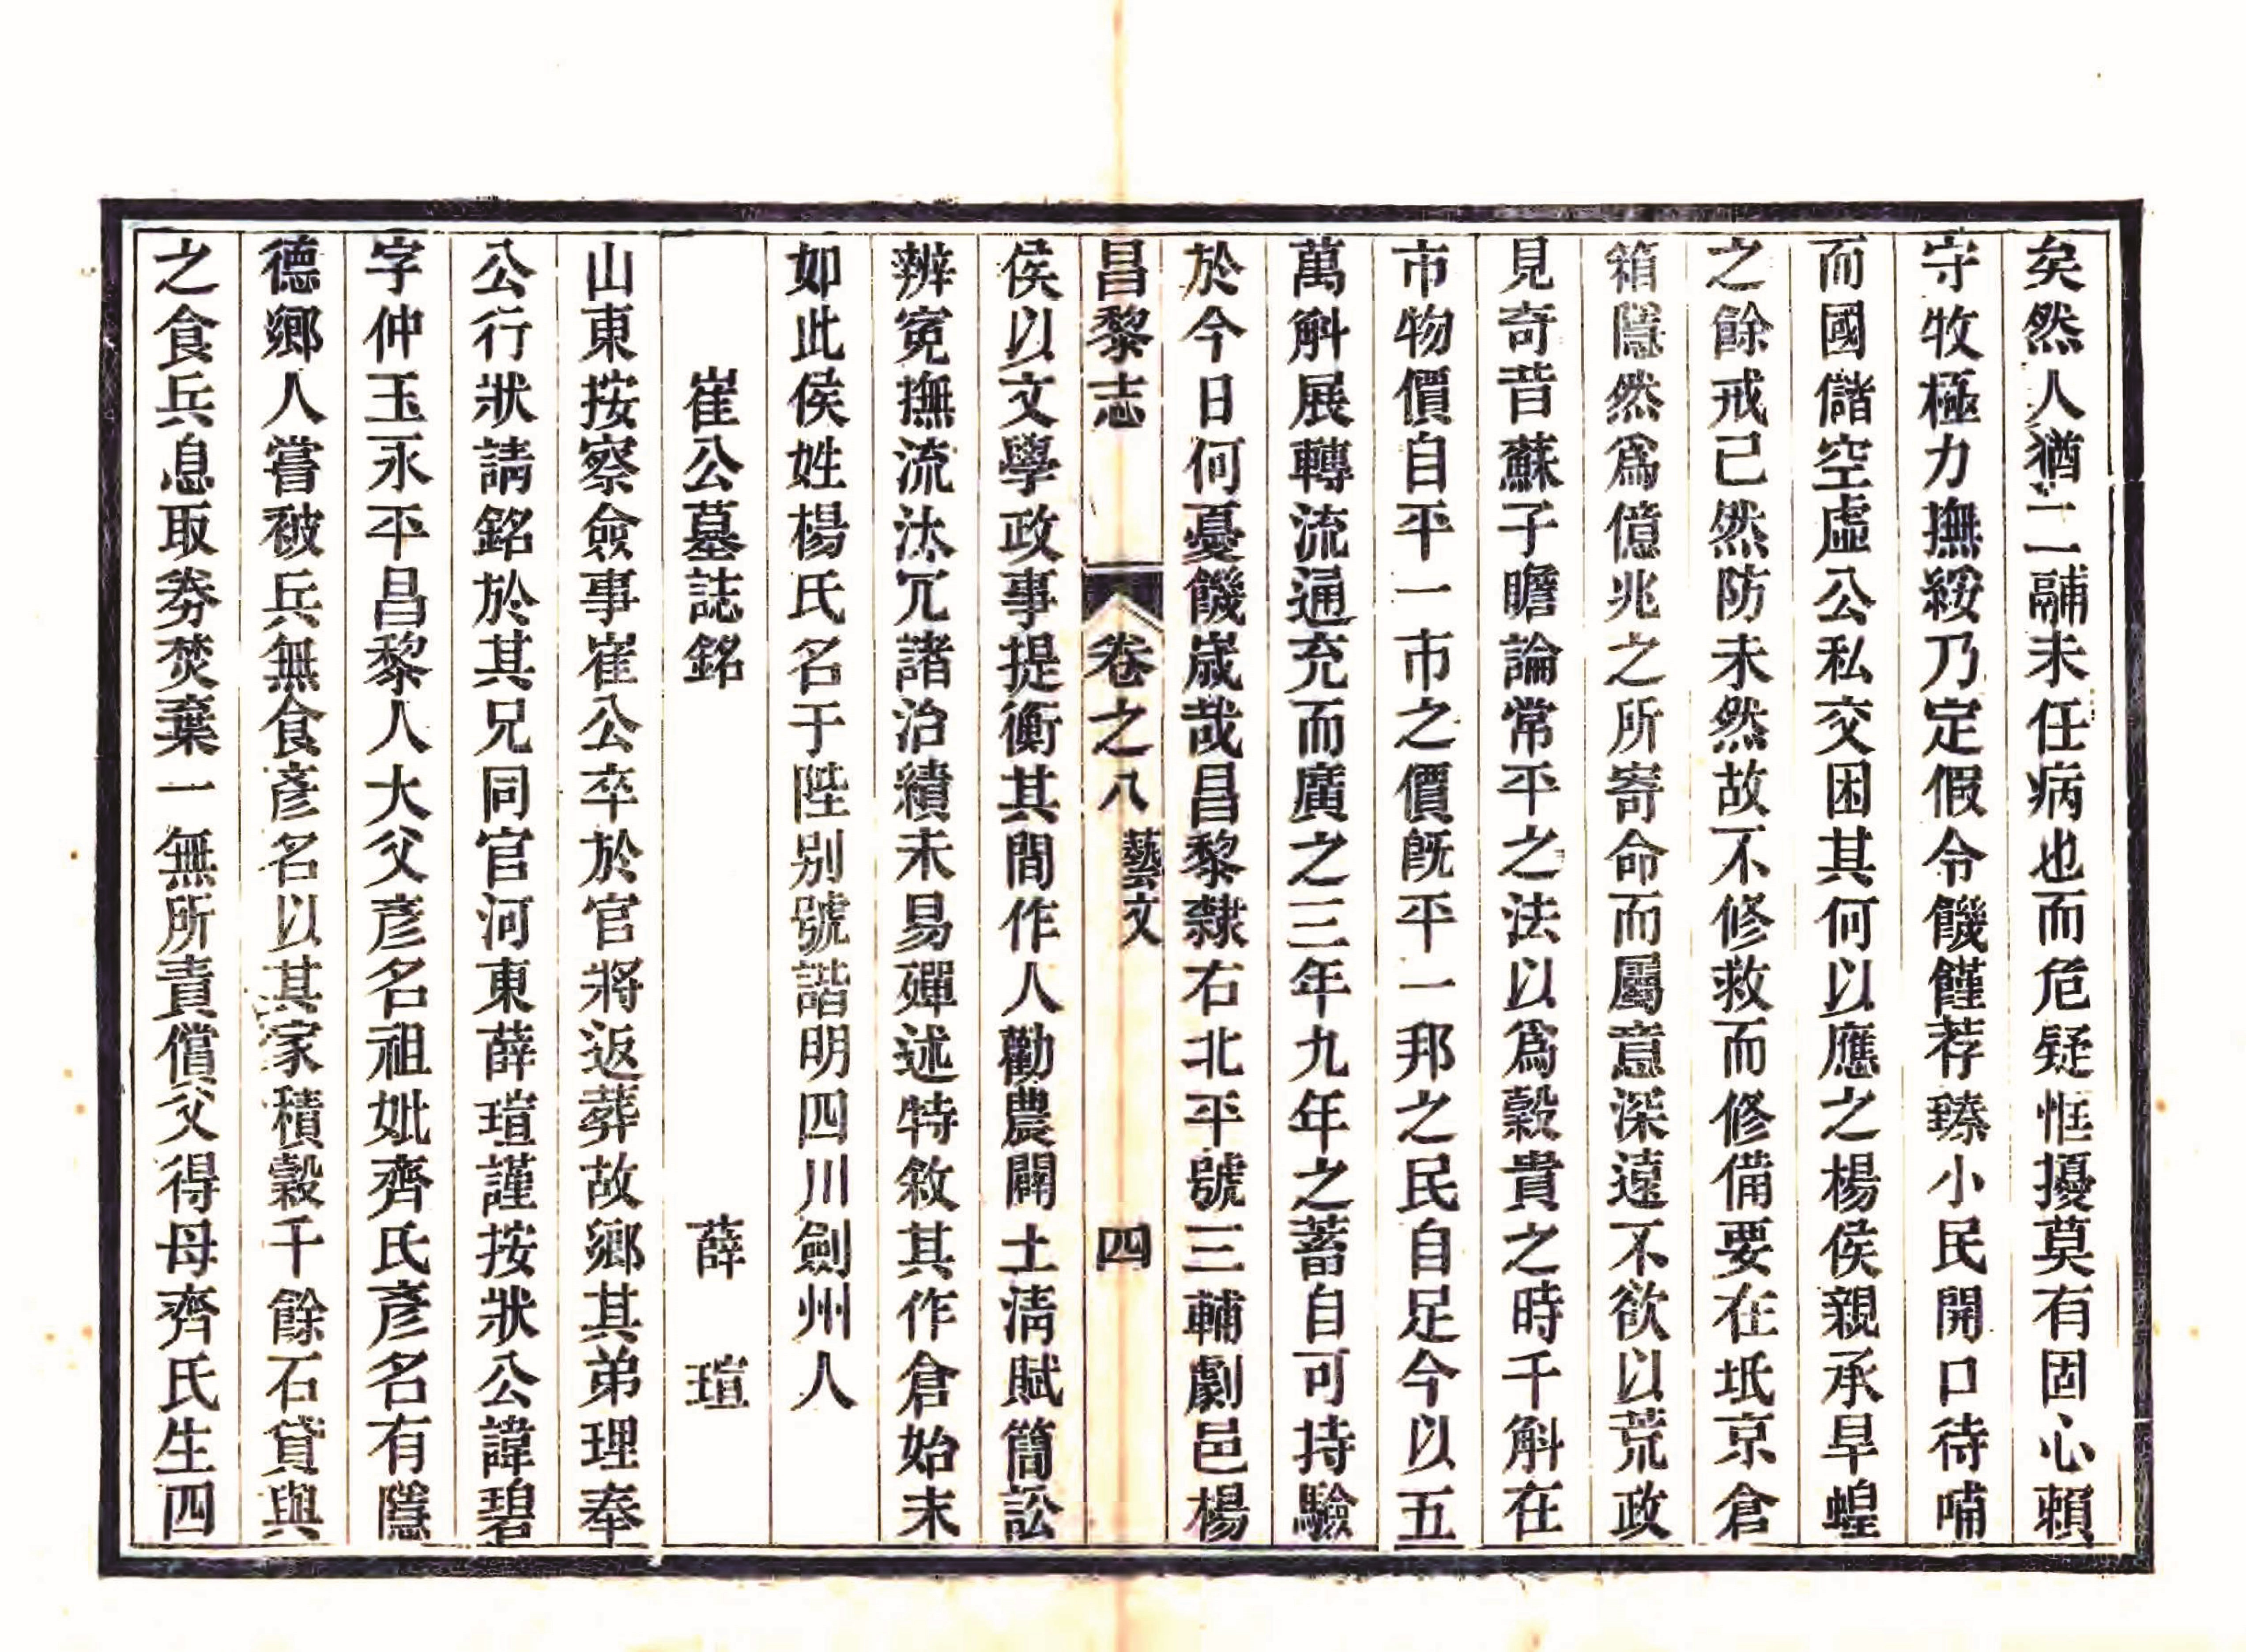 矣然人猶一二鬴未任病也而危疑恇擾莫有固心賴
守牧極力撫綏乃定假令饑饉荐臻小民開口待哺
而國儲空虛公私交困其何以應之楊侯親承旱蝗
之餘戒已然防未然故不修救而修備要在坻京倉
箱隱然爲億兆之所寄命而屬意深遠不欲以荒政
見奇昔蘇子瞻論常平之法以爲穀貴之時千斛在
市物價自平一市之價旣平一邦之民自足今以五
萬斛展轉流通充而廣之三年九年之蓄自可持驗
於今日何憂饑嵗哉昌黎隸右北平號三輔劇邑楊
昌黎志 卷之八 藝文 四
侯以文學政事提衡其間作人勸農闢土淸賦簡訟
辨寃撫流汰冗諸治績未易殫述特敘其作倉始末
如此侯姓楊氏名于陛别號諧明四川劍州人
崔公墓誌銘 薛瑄
山東按察僉事崔公卒於官將返葬故鄉其弟理奉
公行狀請銘於其兄同官河東薛瑄謹按狀公諱碧
字仲玉永平昌黎人大父彥名祖妣齊氏彥名有隱
德鄉人嘗被兵無食彥名以其家積穀千餘石貸與
之食兵息取券焚棄一無所責償父得母齊氏生四